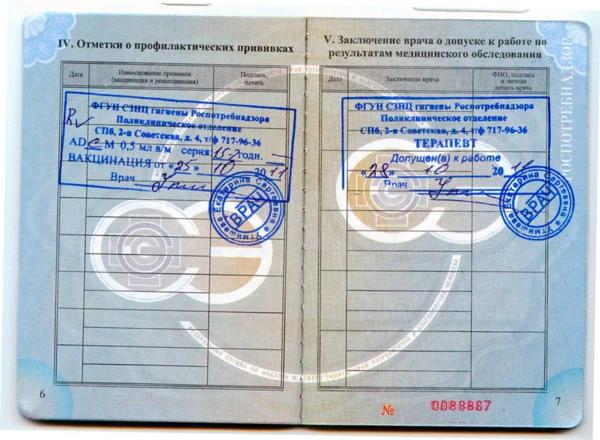 IV. Отметки о профилактических прививках
Дата
Наименование прививки
(вакцинация и ревакцинация)
Подпись,
печать
ФГУН СЗНЦ гигиены Роспотребнадзора
Поликлиническое отделение
СПб, 2-я Советская, д. 4, т/ф 717-96-36
АД С М 0,5 мл в/м серия 157 годн.
ВАКЦИНАЦИЯ от «25» 10 2011
Врач
ВРАЧ
6
V. Заключение врача о допуске к работе по
результатам медицинского обследования
Дата
Заключение врача
ФИО, подпись
и личная
печать врача
ФГУН СЗНЦ гигиены Роспотребнадзора
Поликлиническое отделение
СПб, 2-я Советская, д. 4, т/ф 717-96-36
ТЕРАПЕВТ
Допущен(а) к работе
«28» 10 2011
Врач
Екатерина Сергеевна
ВРАЧ
РОСПОТРЕБНАДЗОР
7
№ 0088887